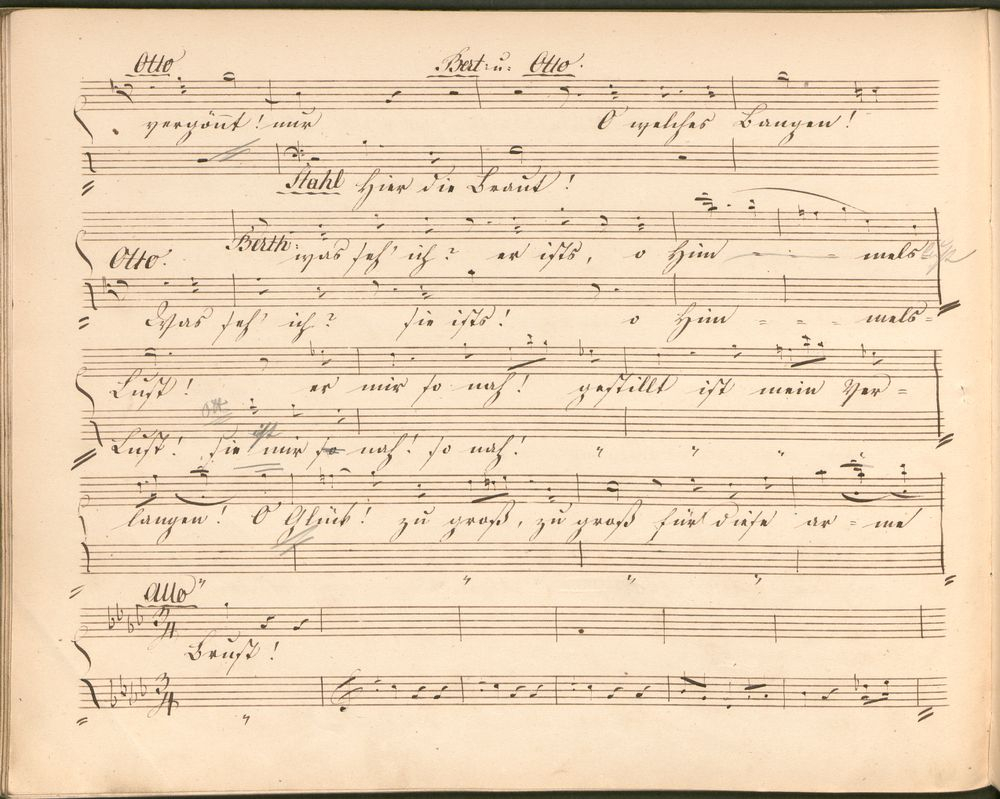 Otto Bert: u: Otto.
vergönnt! nur O welches Bangen!
Stahl Hier die Braut!
Berth: was seh' ich? er ists, o Him - - - mels
Otto.
Was seh' ich? sie ists! o Him = = = mels=
Lust! er mir so nah! gestillt ist mein Ver=
Ott.
ist
Lust! sie mir so nah! so nah!
langen! O Glück! zu groß, zu groß für diese ar = me
Allo
3/4
Brust!
3/4